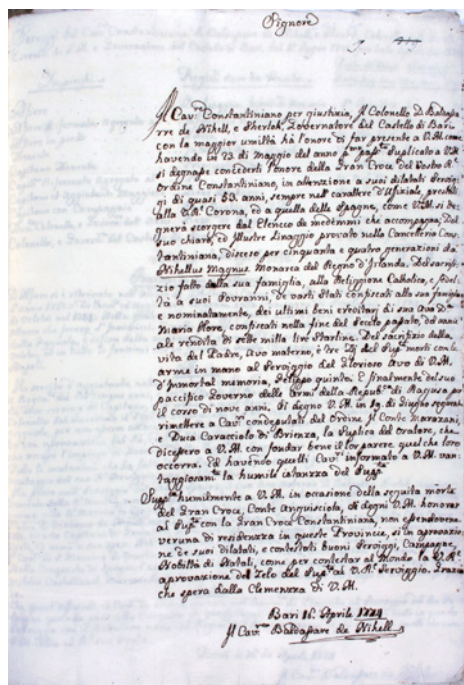 Signore
Il Cav.re Constantiniano per giustizia, Il Colonello D. Baldassa
rre de Nihell, e Sherlok, Governatore del Castello di Bari
con la maggior umiltà hà l'onore di far presente a V.M.
havendo in 23. di Maggio del anno pass.to suplicato a V.M.
si degnasse concederli l'onore della Gran Croce del Vostro R.l
Ordine Constantiniano, in attenzione a suoi dilatati Servig
gi di quasi 53. anni, sempre nel carattere d'Ufiziale, prestati
alla V. R.l Corona, ed a quella delle Spagne, come V.M. si De
gnerà scorgere dal Elenco de medemmi che accompagna, Del
suo chiaro, ed Illustre Linaggio provato nella Cancelleria Cons
tantiniana, disceso per cinquanta e quatro generazioni da
Nihellus Magnus Monarca del Regno d'Irlanda. Del sacrifi
zio fatto dalla sua famiglia, alla Religgione Catholica, e fidel
tà a suoi Sovranni, De vasti Stati confiscati alla sua famiglia
e nominatamente, dei ultimi beni ereditarj di sua Ava D.a
Maria Hore, confiscati nella fine del Secolo passato, del annu
ale rendita di sette milla lire Starline. Del sacrifizio della
vita del Padre, Avo materno, e trè Zij del Sup.te morti con le
arme in mano al Serviggio del Glorioso Avo di V.M.
d'Immortal memoria, Felippo quinto. E finalmente del suo
paccifico Governo delle Armi della Repub.ca di Ragusa per
il corso di nove anni. Si degnò V.M. in 19. di Giugno
rimettere a Cav.ri condeputati del Ordine Il Conte Marazani,
e Duca Caracciolo di Brienza, la Suplica del Oratore, che
Dicessero a V.M. con fondar bene il lor parere, quel che loro
occorra. Ed havendo quelli Cav.ri informato a V.M. van
taggiosam.te la humile istanza del Sup.te
Sup.ca humilmente a V.M. in occasione della seguita morte
del Gran Croce, Conte Anguisciola, si degni V.M. honorar
al Sup.te con la Gran Croce Constantiniana, non
veruna di residenzza in queste Provincie, si in aprovazio
ne de suoi dilatati, e contestati buoni Serviggi, Campagne,
Nobiltà di Natali, come per contestar al Mondo la V. R.l
aprovazione del Zelo del Sup.te al V. R.l Serviggio. Grazia
che spera dalla Clemenzza di V.M.
Bari 16. Aprile 1774
Il Cav.re Baldassare de Nihell